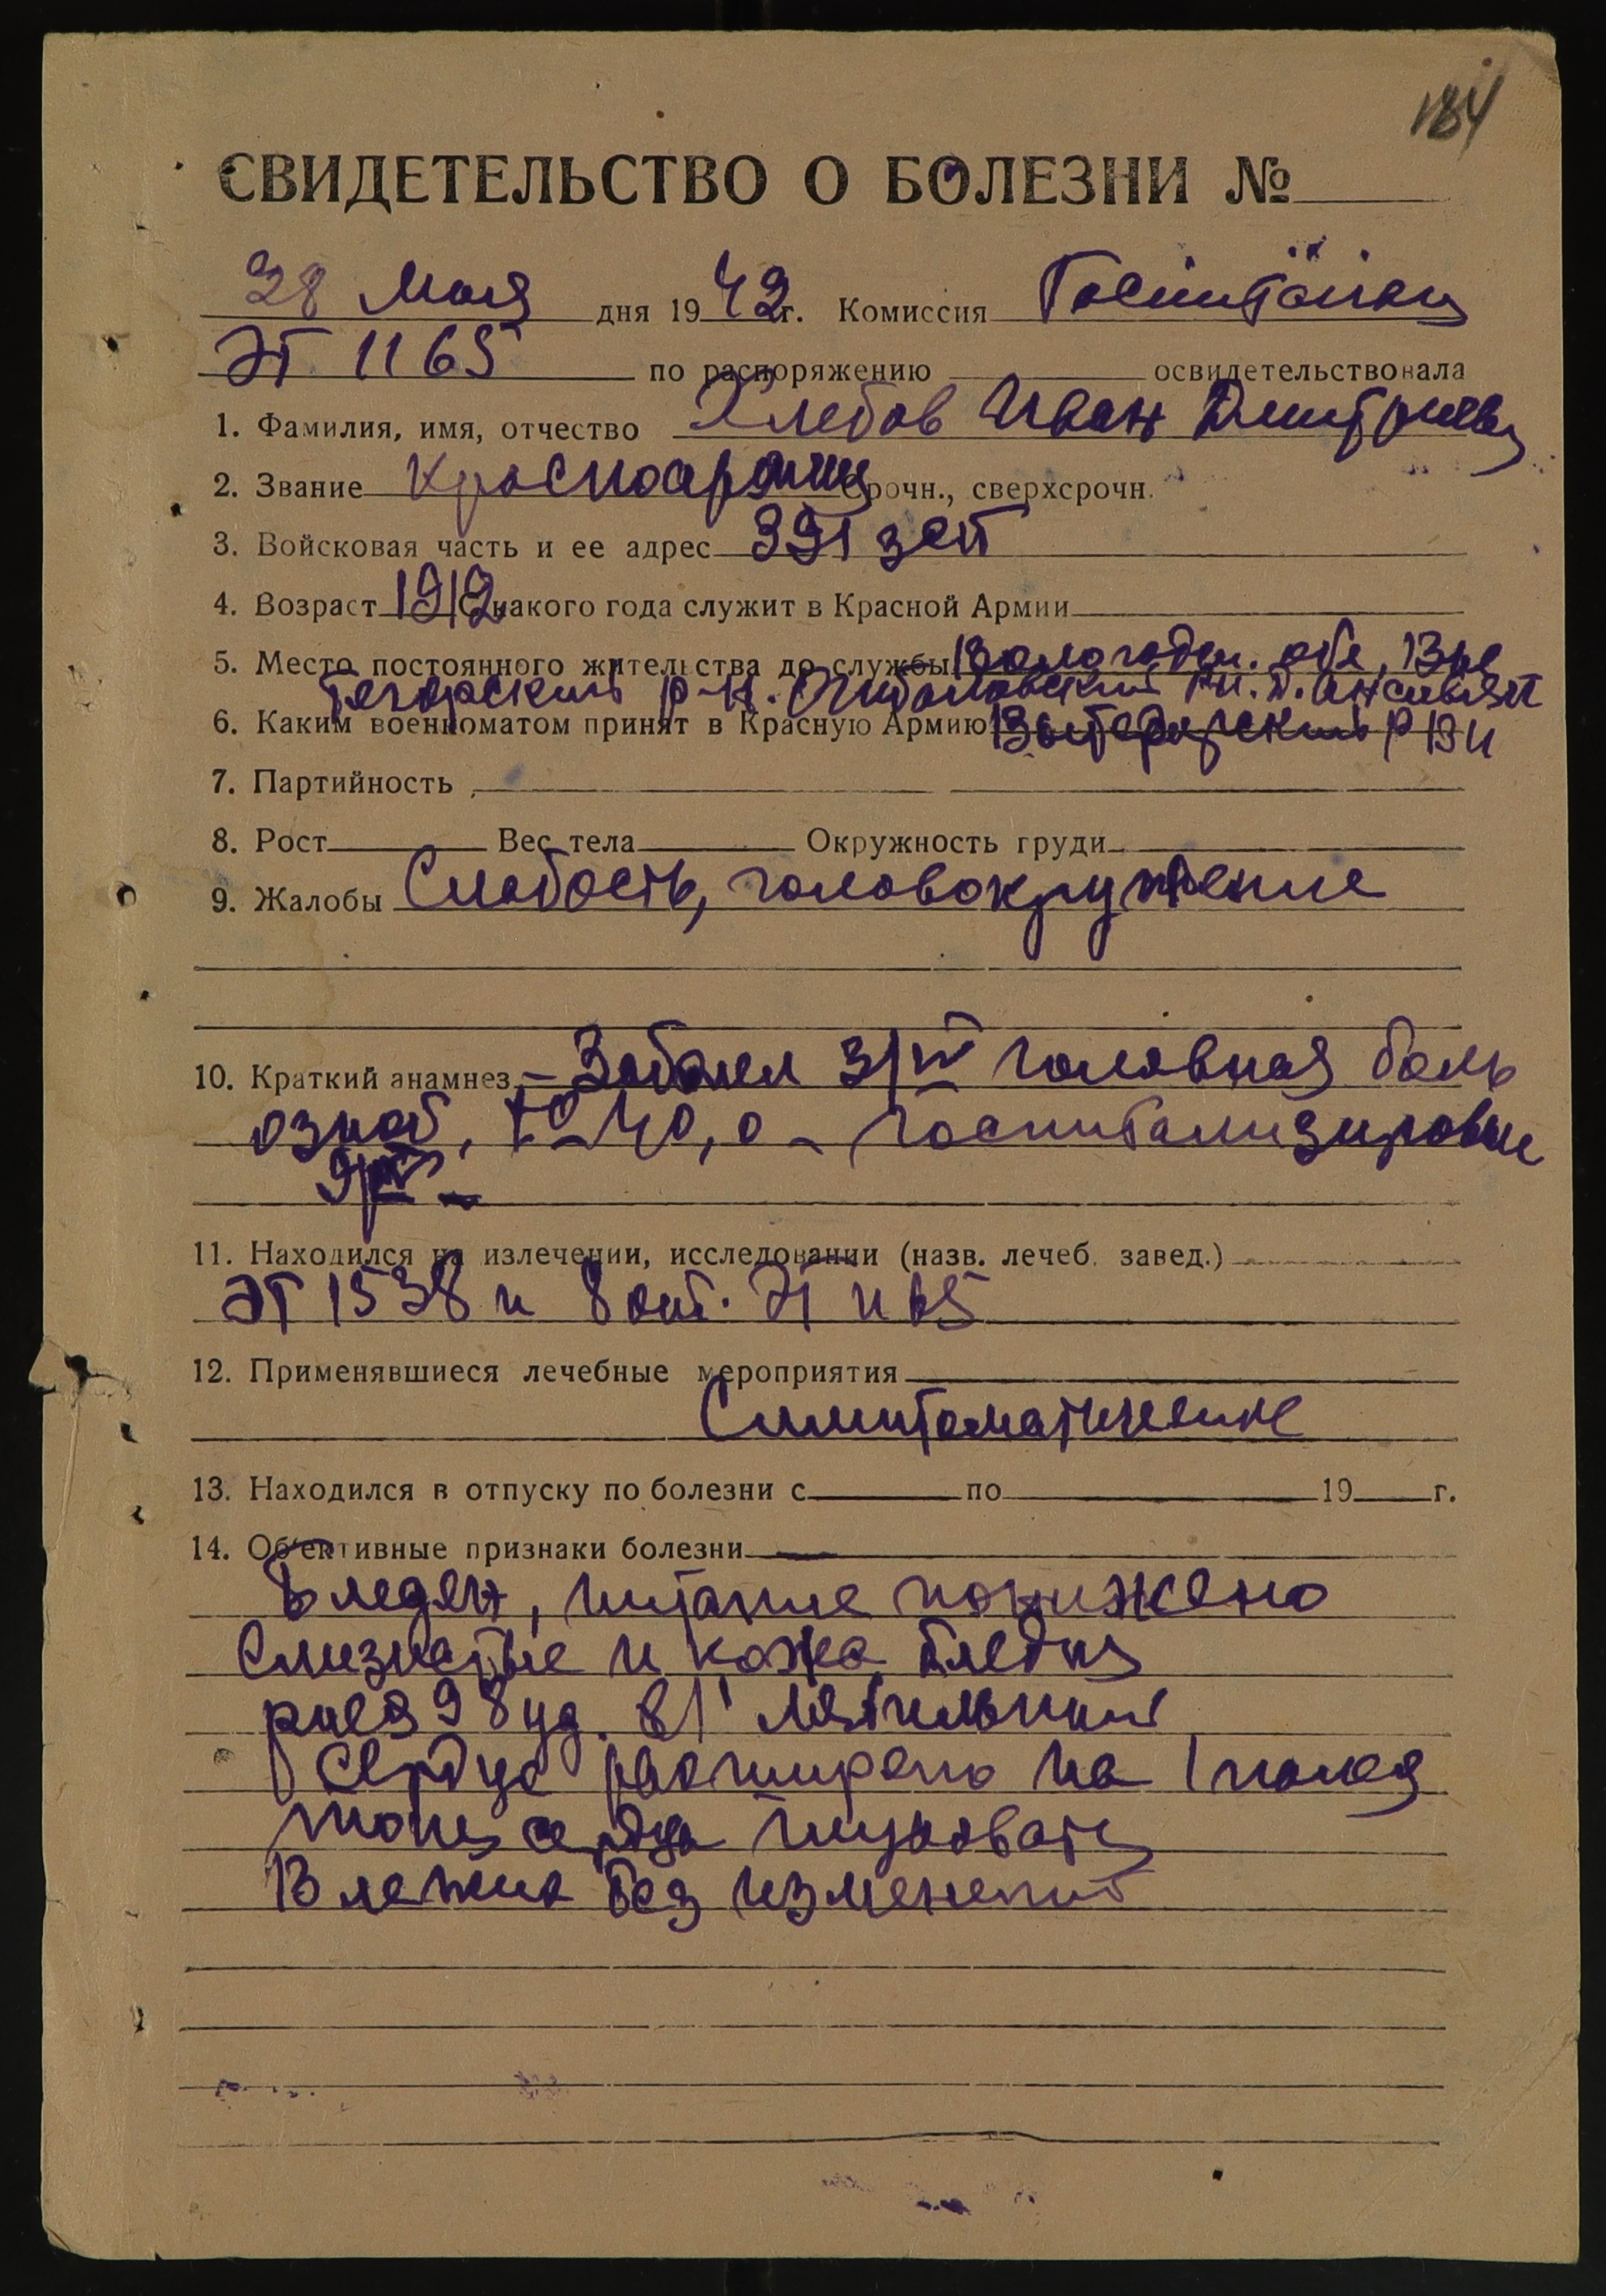 184
СВИДЕТЕЛЬСТВО О БОЛЕЗНИ №
28 Мая дня 1942г. Комиссия Госпиталя
ЭГ 1165 по распоряжению освидетельствовала
1. Фамилия, имя, отчество Хлебов Иван Дмитриев
2. Звание Красноармеец Срочн., сверхсрочн.
3. Войсковая часть и ее адрес 391 зсп
4. Возраст 1912 С какого года служит в Красной Армии
5. Место постоянного жительства до службы Вологодск. обл, Вы
тегорский р-н.
6. Каким военкоматом принят в Красную Армию Вытегорский РВК
7. Партийность
8. Рост Вес тела Окружность груди
9. Жалобы Слабость, головокружение
10. Краткий анамнез – Заболел 3/IV головная боль
озноб, t° – 40,0 – госпитализирован
9/IV –
11. Находился на излечении, исследовании (назв. лечеб. завед.)
ЭГ 1538 и 8 отд. ЭГ 1165
12. Применявшиеся лечебные мероприятия
Симптоматическое
13. Находился в отпуску по болезни с по 19 г.
14. Об'ективные признаки болезни
Бледен, питание понижено
Слизистые и кожа бледны
98 уд. в 1'
Сердце расширено на 1 палец
тоны сердца глуховаты
В легких без изменений